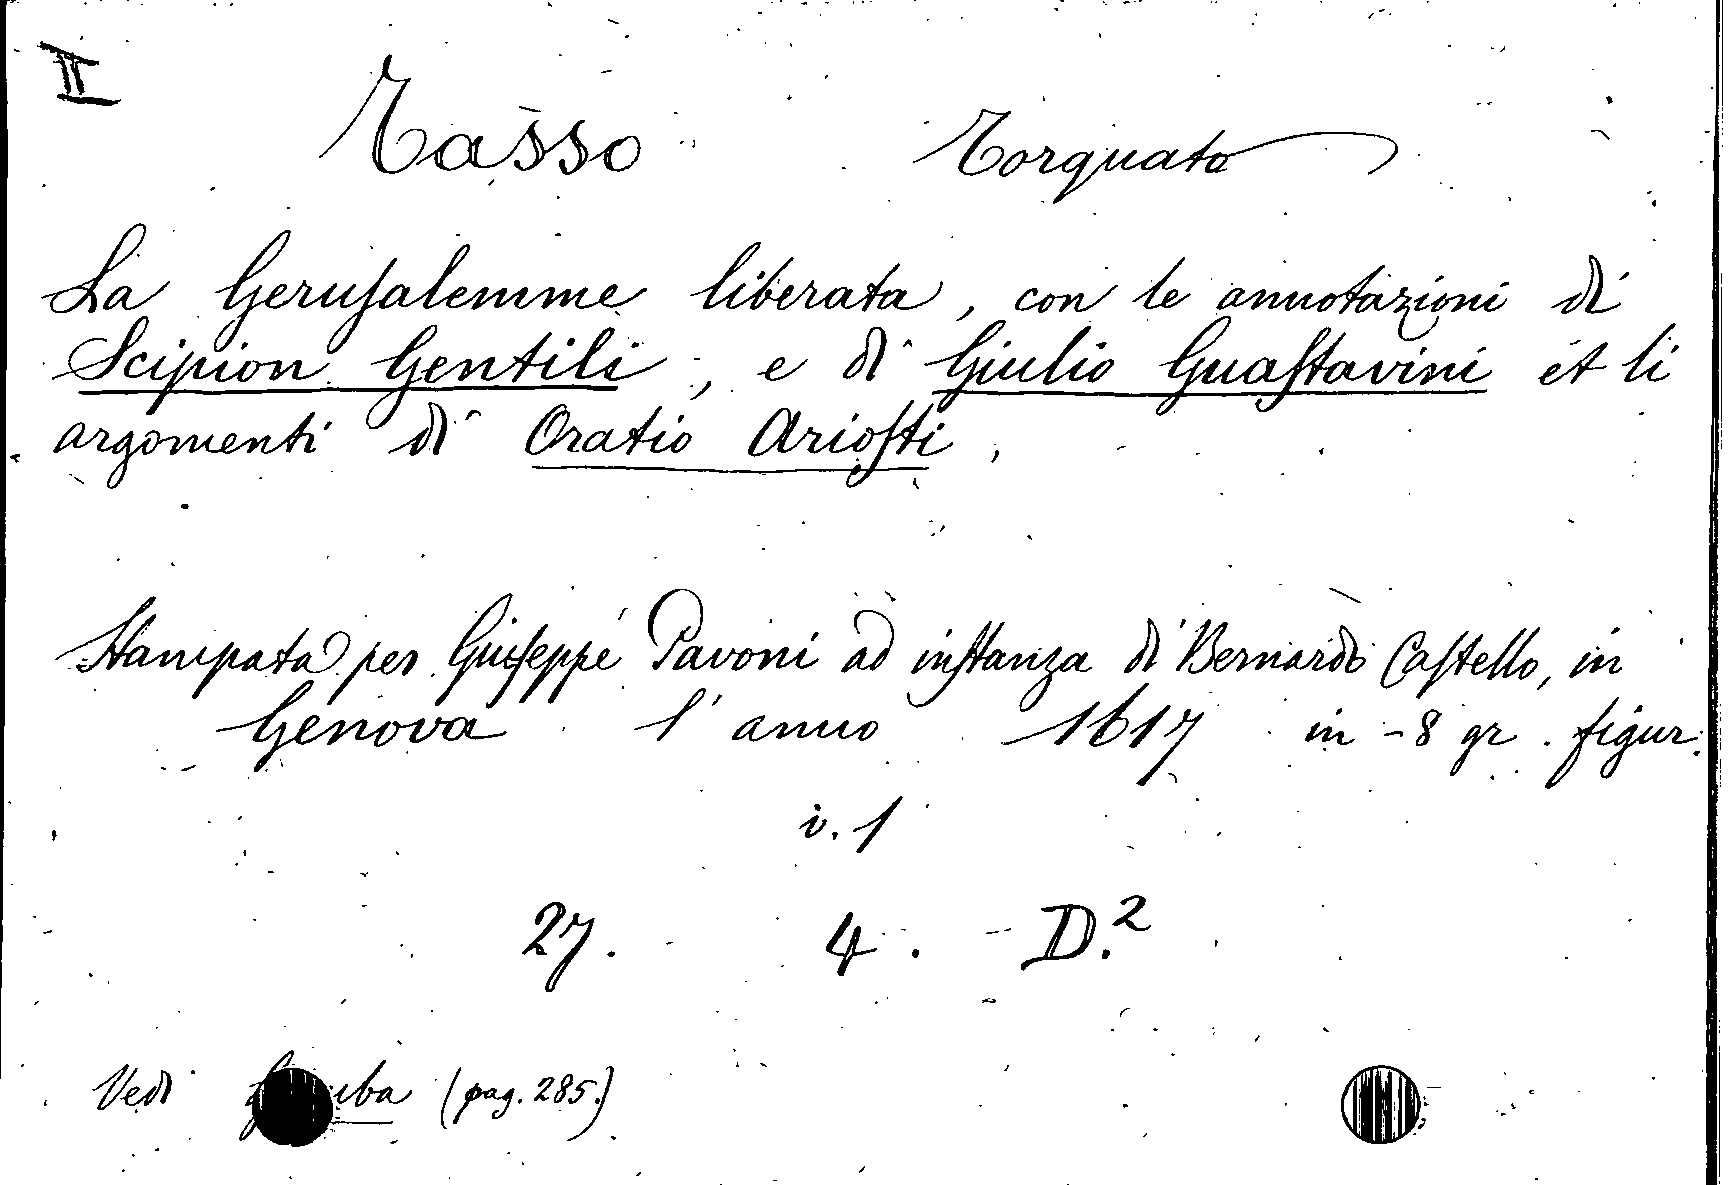 II
Tasso Torquato
La Gerusalemme liberata, con le annotazioni di
Scipion Gentili, e di Giulio Guastavini et li
argomenti di Oratio Ariosti.
Stampata per Giuseppe Pavoni ad instanza di Bernardo Castello, in
Genova l'anno 1617 in-8 gr. figur.
v. 1
27. 4. D.2
Vedi (pag. 285.)